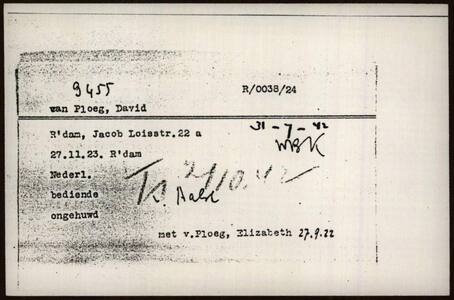 9455 R/0038/24
van Ploeg, David
R'dam, Jacob Loisstr.22 a 31-7-42
27.11.23. R'dam WBK
Nederl. 2/10.42
bediende
ongehuwd
met v.Ploeg, Elizabeth 27.9.22